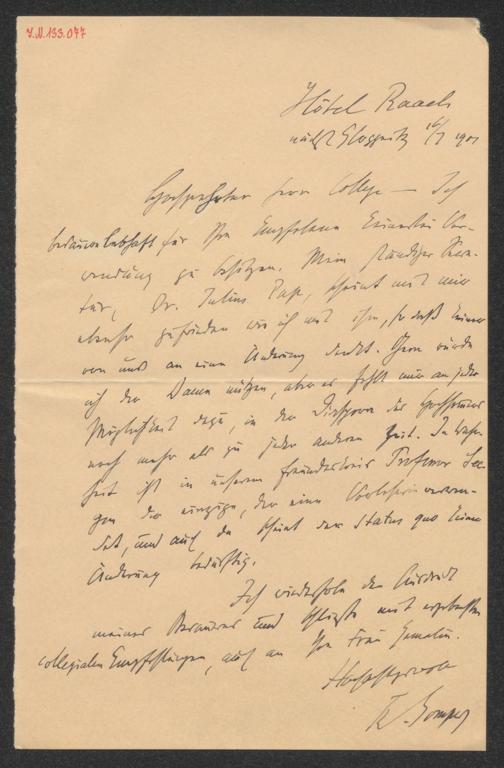 I.N.133.077
Hôtel Raach
nächst Gloggnitz 16/7 1901
Hochgeehrter Herr College — Ich
bedaure lebhaft für Ihre Empfohlene keinerlei Ver-
wendung zu besitzen. Mein ständiger Sekre-
tär, Dr. Julius Pap, scheint mit mir
ebenso zufrieden wie ich mit ihm, so daß keiner
von uns an eine Änderung denkt. Gern würde
ich der Dame nützen, aber es fehlt mir an jeder
Möglichkeit dazu, in der Diaspora des Hochsommers
noch mehr als zu jeder anderen Zeit. In
ist in unserem Freundeskreis Professor See-
gen der einzige, der eine Vorleserin verwen-
det, und auch da scheint der Status quo keiner
Änderung bedürftig.
Ich wiederhole den Ausdruck
meines Bedauerns und schließe mit ergebensten
collegialen Empfehlungen, auch an Ihre Frau Gemalin.
Hochachtungsvoll
Th. Gomperz